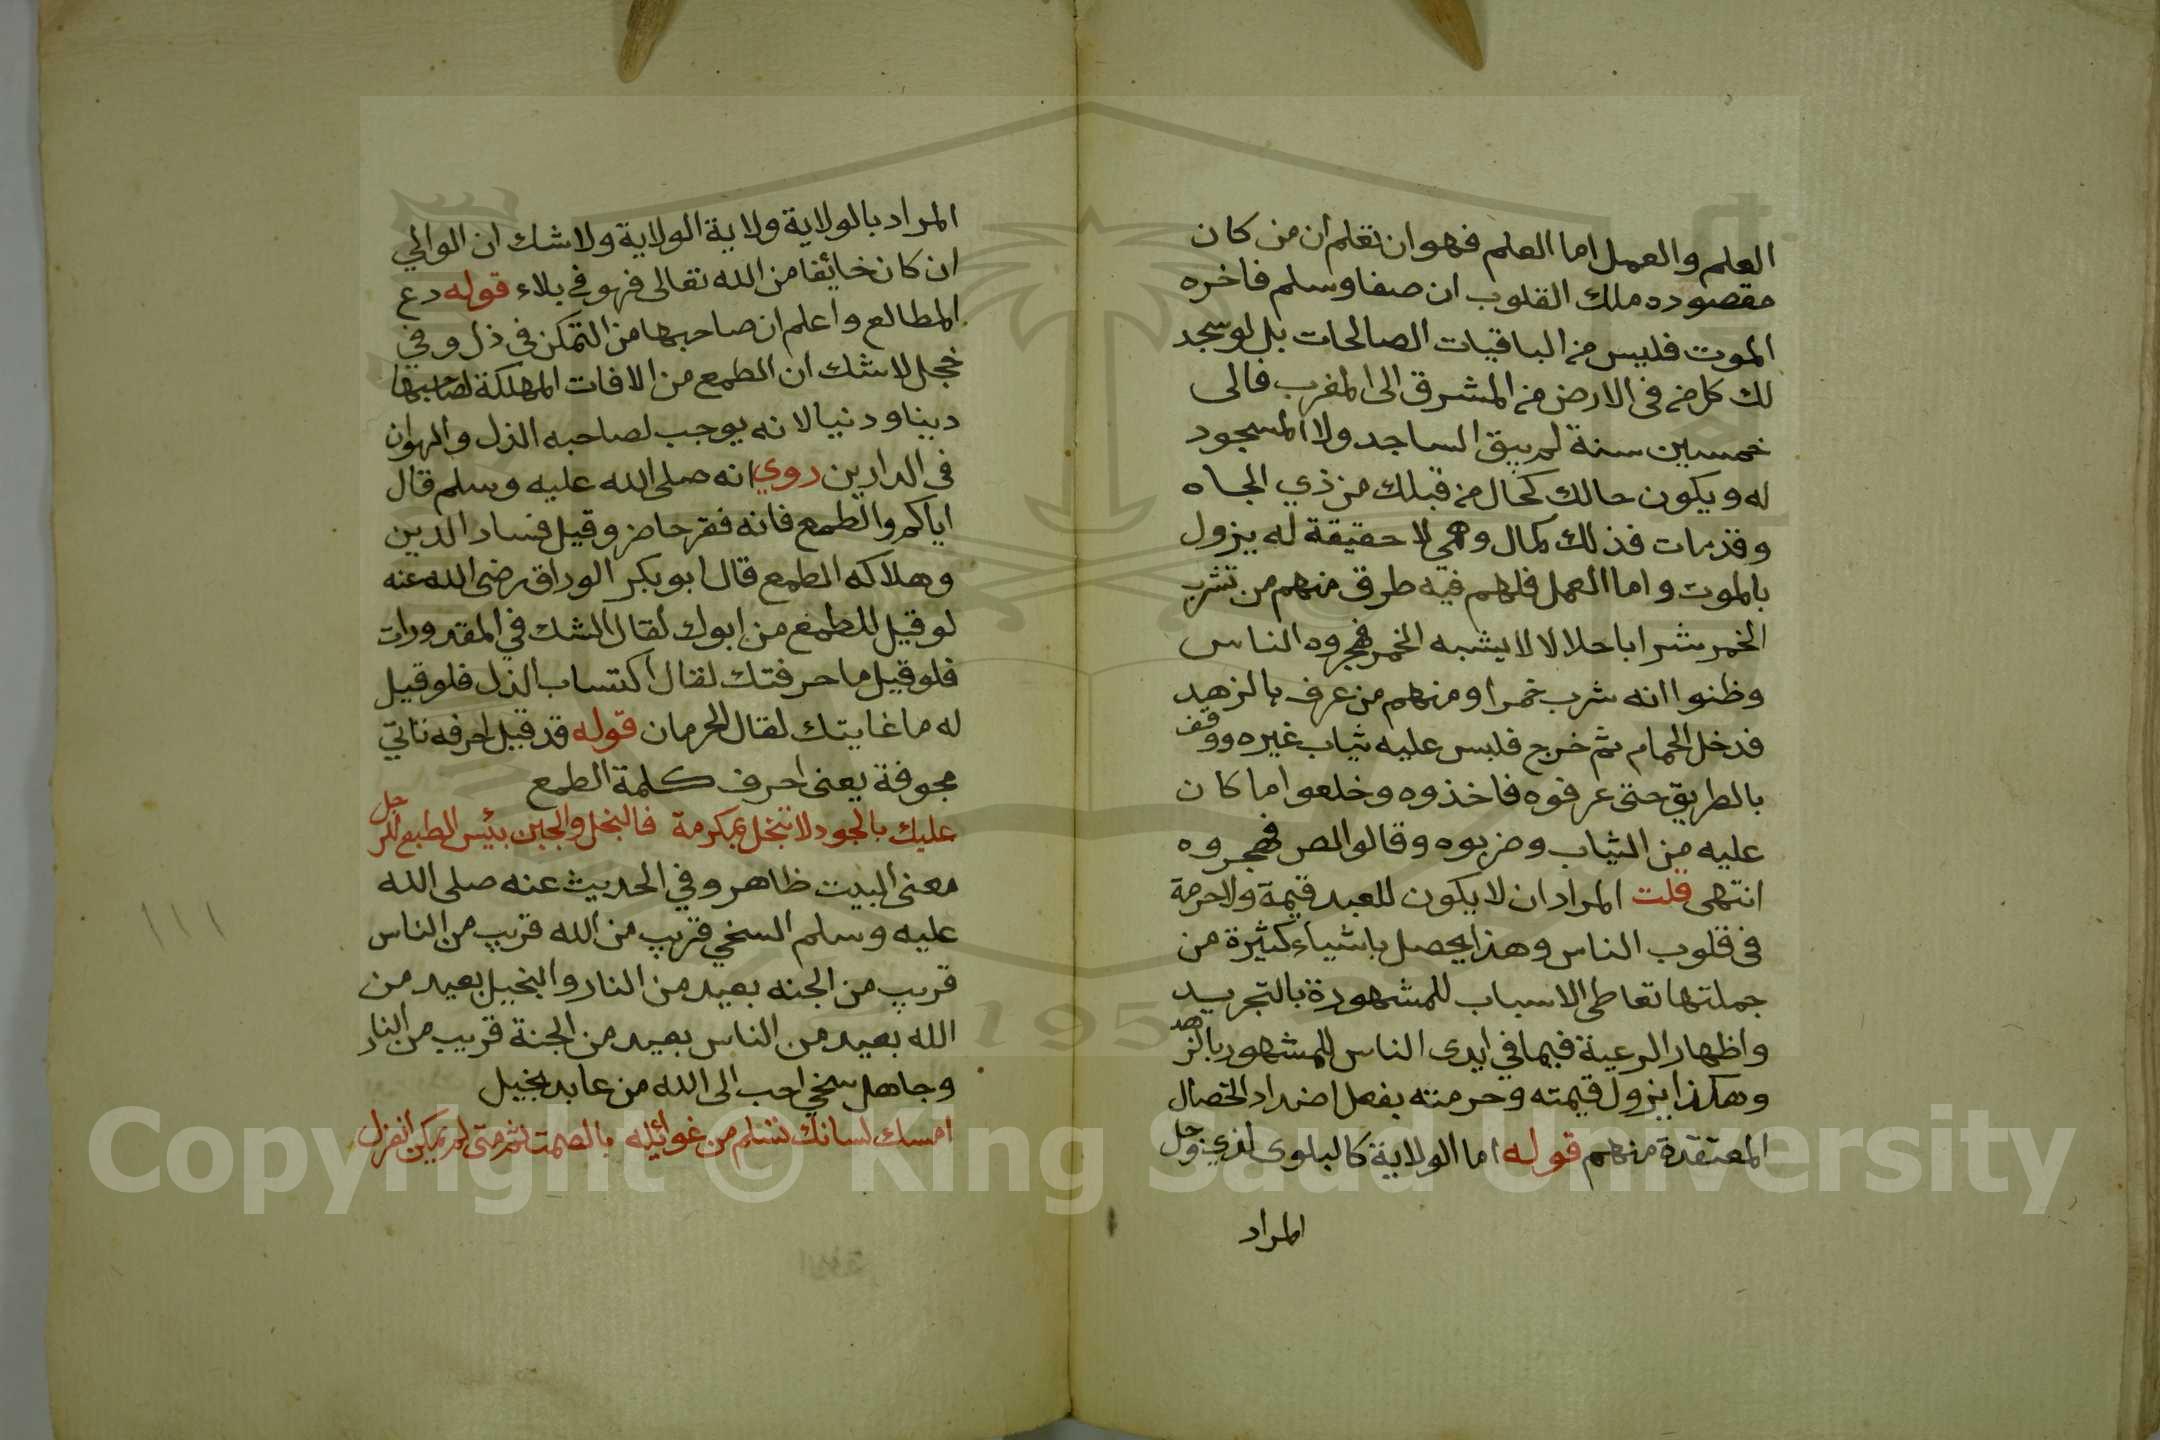 العلم والعمل اما العلم فهو ان تعلم ان من كان
مقصوده ملك القلوب ان صفا وسلم فاخره
الموت فليس من الباقيات الصالحات بل لو سجد
لك كل من في الارض من المشرق الى المغرب فالى
خمسين سنة لم يبق الساجد ولا المسجود
له ويكون حالك كحال من قبلك من ذي الجاه
وقد مات فذلك كمال وهمي لا حقيقة له يزول
بالموت واما العمل فلهم فيه طرق منهم من تشرب
الخمر شرابا حلالا لا يشبه الخمر فهجروه الناس
وظنوا انه شرب خمرا ومنهم من عرف بالزهد
فدخل الحمام ثم خرج فلبس عليه ثياب غيره ووقف
بالطريق حتى عرفوه فاخذوه وخلعوا ما كان
عليه من الثياب وضربوه وقالوا لص فهجروه
انتهى قلت المراد ان لا يكون للعبد قيمة ولا حرمة
في قلوب الناس وهذا يحصل باشياء كثيرة من
جملتها تعاطى الاسباب للمشهورة بالتجريد
واظهار الرعية فيما في ايدى الناس للمشهور بالزهد
وهكذا يزول قيمته وحرمته بفعل اضداد الخصال
المعتقدة منهم قوله اما الولاية كالبلوى لذي وجل
المراد
المراد بالولاية ولاية الولاية ولا شك ان الوالي
ان كان خائفا من الله تعالى فهو في بلاء قوله دع
المطالع واعلم ان صاحبها من التمكن في ذل وفي
خجل لا شك ان الطمع من الافات المهلكة لصاحبها
دينا ودنيا لانه يوجب لصاحبه الذل والهوان
في الدارين روي انه صلى الله عليه وسلم قال
اياكم والطمع فانه فقر حاضر وقيل فساد الدين
وهلاكه الطمع قال ابو بكر الوراق رضى الله عنه
لو قيل للطمع من ابوك لقال الشك في المقدورات
فلو قيل ما حرفتك لقال اكتساب الذل فلو قيل
له ما غايتك لقال الحرمان قوله قد قيل احرفه تاتي
مجوفة يعنى احرف كلمة الطمع
عليك بالجود لا تبخل بمكرمة فالبخل والجبن بئيس الطبع للرجل
معنى البيت ظاهر وفي الحديث عنه صلى الله
عليه وسلم السخي قريب من الله قريب من الناس
قريب من الجنه بعيد من النار والبخيل بعيد من
الله بعيد من الناس بعيد من الجنة قريب من النار
وجاهل سخي احب الى الله من عابد بخيل
امسك لسانك تسلم من غوائله بالصمت